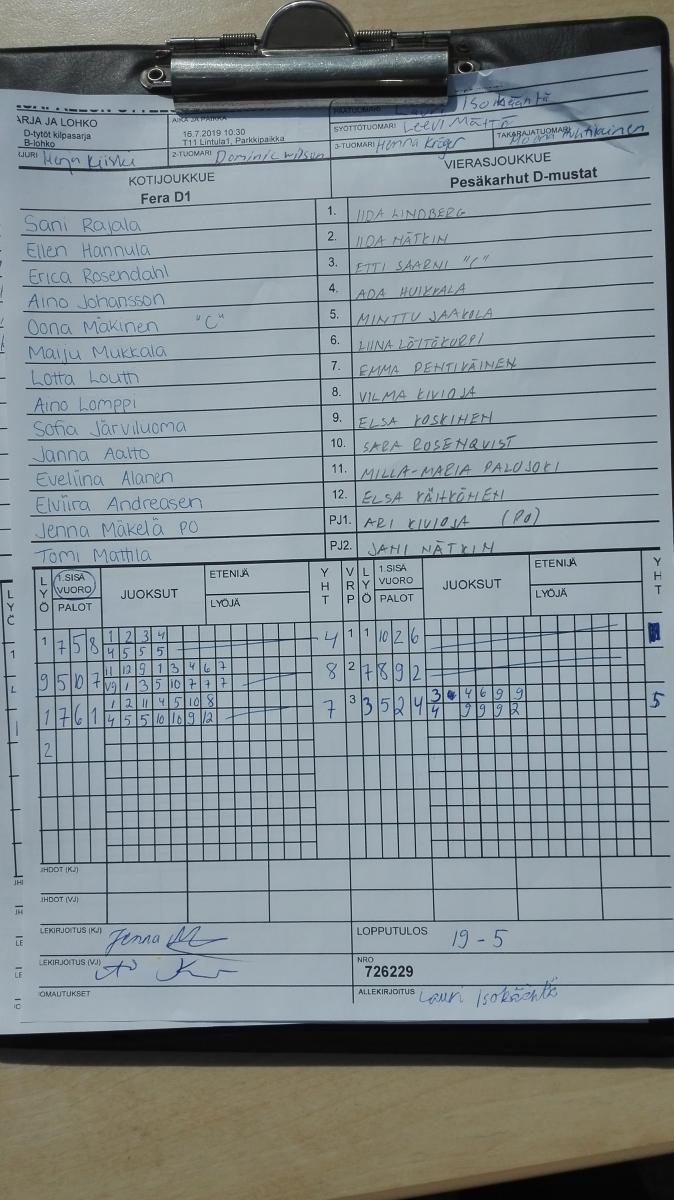 ARJA JA LOHKO
D-tytöt kilpasarja
B-lohko
AIKA JA PAIKKA
16.7.2019 10:30
T11 Lintula1, Parkkipaikka
Lauri Isokääntä
SYÖTTÖTUOMARI Leevi Mättö
2-TUOMARI Dominic Wilson
3-TUOMARI Henna Kröger
TAKARAJATUOMARI
KOTIJOUKKUE
Fera D1
VIERASJOUKKUE
Pesäkarhut D-mustat
Sani Rajala 1. IIDA LINDBERG
Ellen Hannula 2. IIDA NÄTKIN
Erica Rosendahl 3. ETTI SAARNI "C"
Aino Johansson 4. ADA HUIKKALA
Oona Mäkinen "C" 5. MINTTU JAAKOLA
Maiju Mukkala 6. LIINA LÖITÖKORPI
Lotta Louth 7. EMMA PENTIKÄINEN
Aino Lomppi 8. VILMA KIVIOJA
Sofia Järviluoma 9. ELSA KOSKINEN
Janna Aalto 10. SARA ROSENQVIST
Eveliina Alanen 11. MILLA-MARIA PALOJOKI
Elviira Andreasen 12. ELSA KÄHKÖNEN
Jenna Mäkelä PO PJ1. ARI KIVIOJA (PO)
Tomi Mattila PJ2. JANI NÄTKIN
LYÖ 1.SISÄ VUORO PALOT JUOKSUT ETENIJÄ LYÖJÄ YHT VRP LYÖ 1.SISÄ VUORO PALOT JUOKSUT ETENIJÄ LYÖJÄ YHT
1 7 5 8 1 2 3 4 4 1 1 10 2 6
4 5 5 5
9 5 10 7 11 12 9 1 3 4 6 7 8 2 7 8 9 2
V9 1 3 5 10 7 7 7
1 7 6 1 1 2 11 4 5 10 8 7 3 3 5 2 4 3 4 6 9 9 5
4 5 5 10 10 9 12 4 9 9 9 2
2
JHDOT (KJ)
JHDOT (VJ)
LEKIRJOITUS (KJ) Jenna
LOPPUTULOS 19 - 5
LEKIRJOITUS (VJ)
NRO
726229
OMAUTUKSET
ALLEKIRJOITUS Lauri Isokääntä